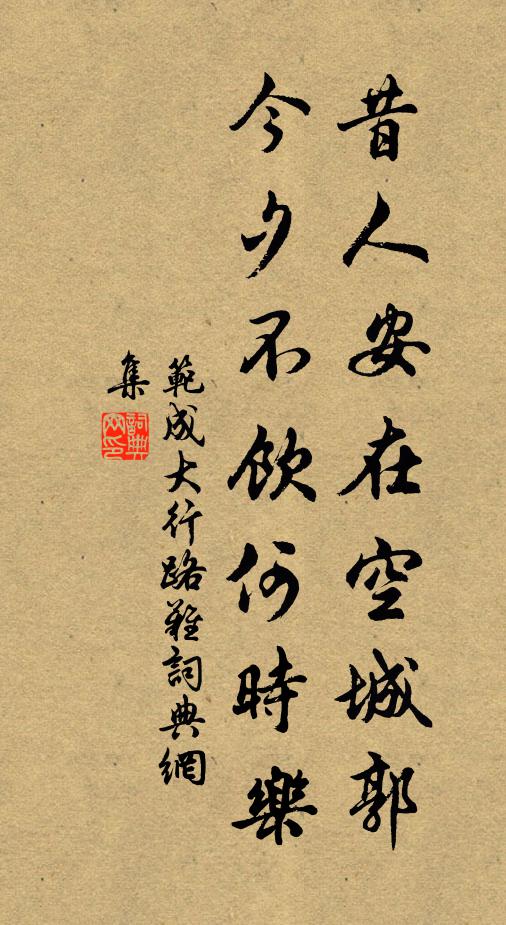 昔人安在空城郭
今夕不飲何時樂
範成大行路難詞典網
集
詞典網印